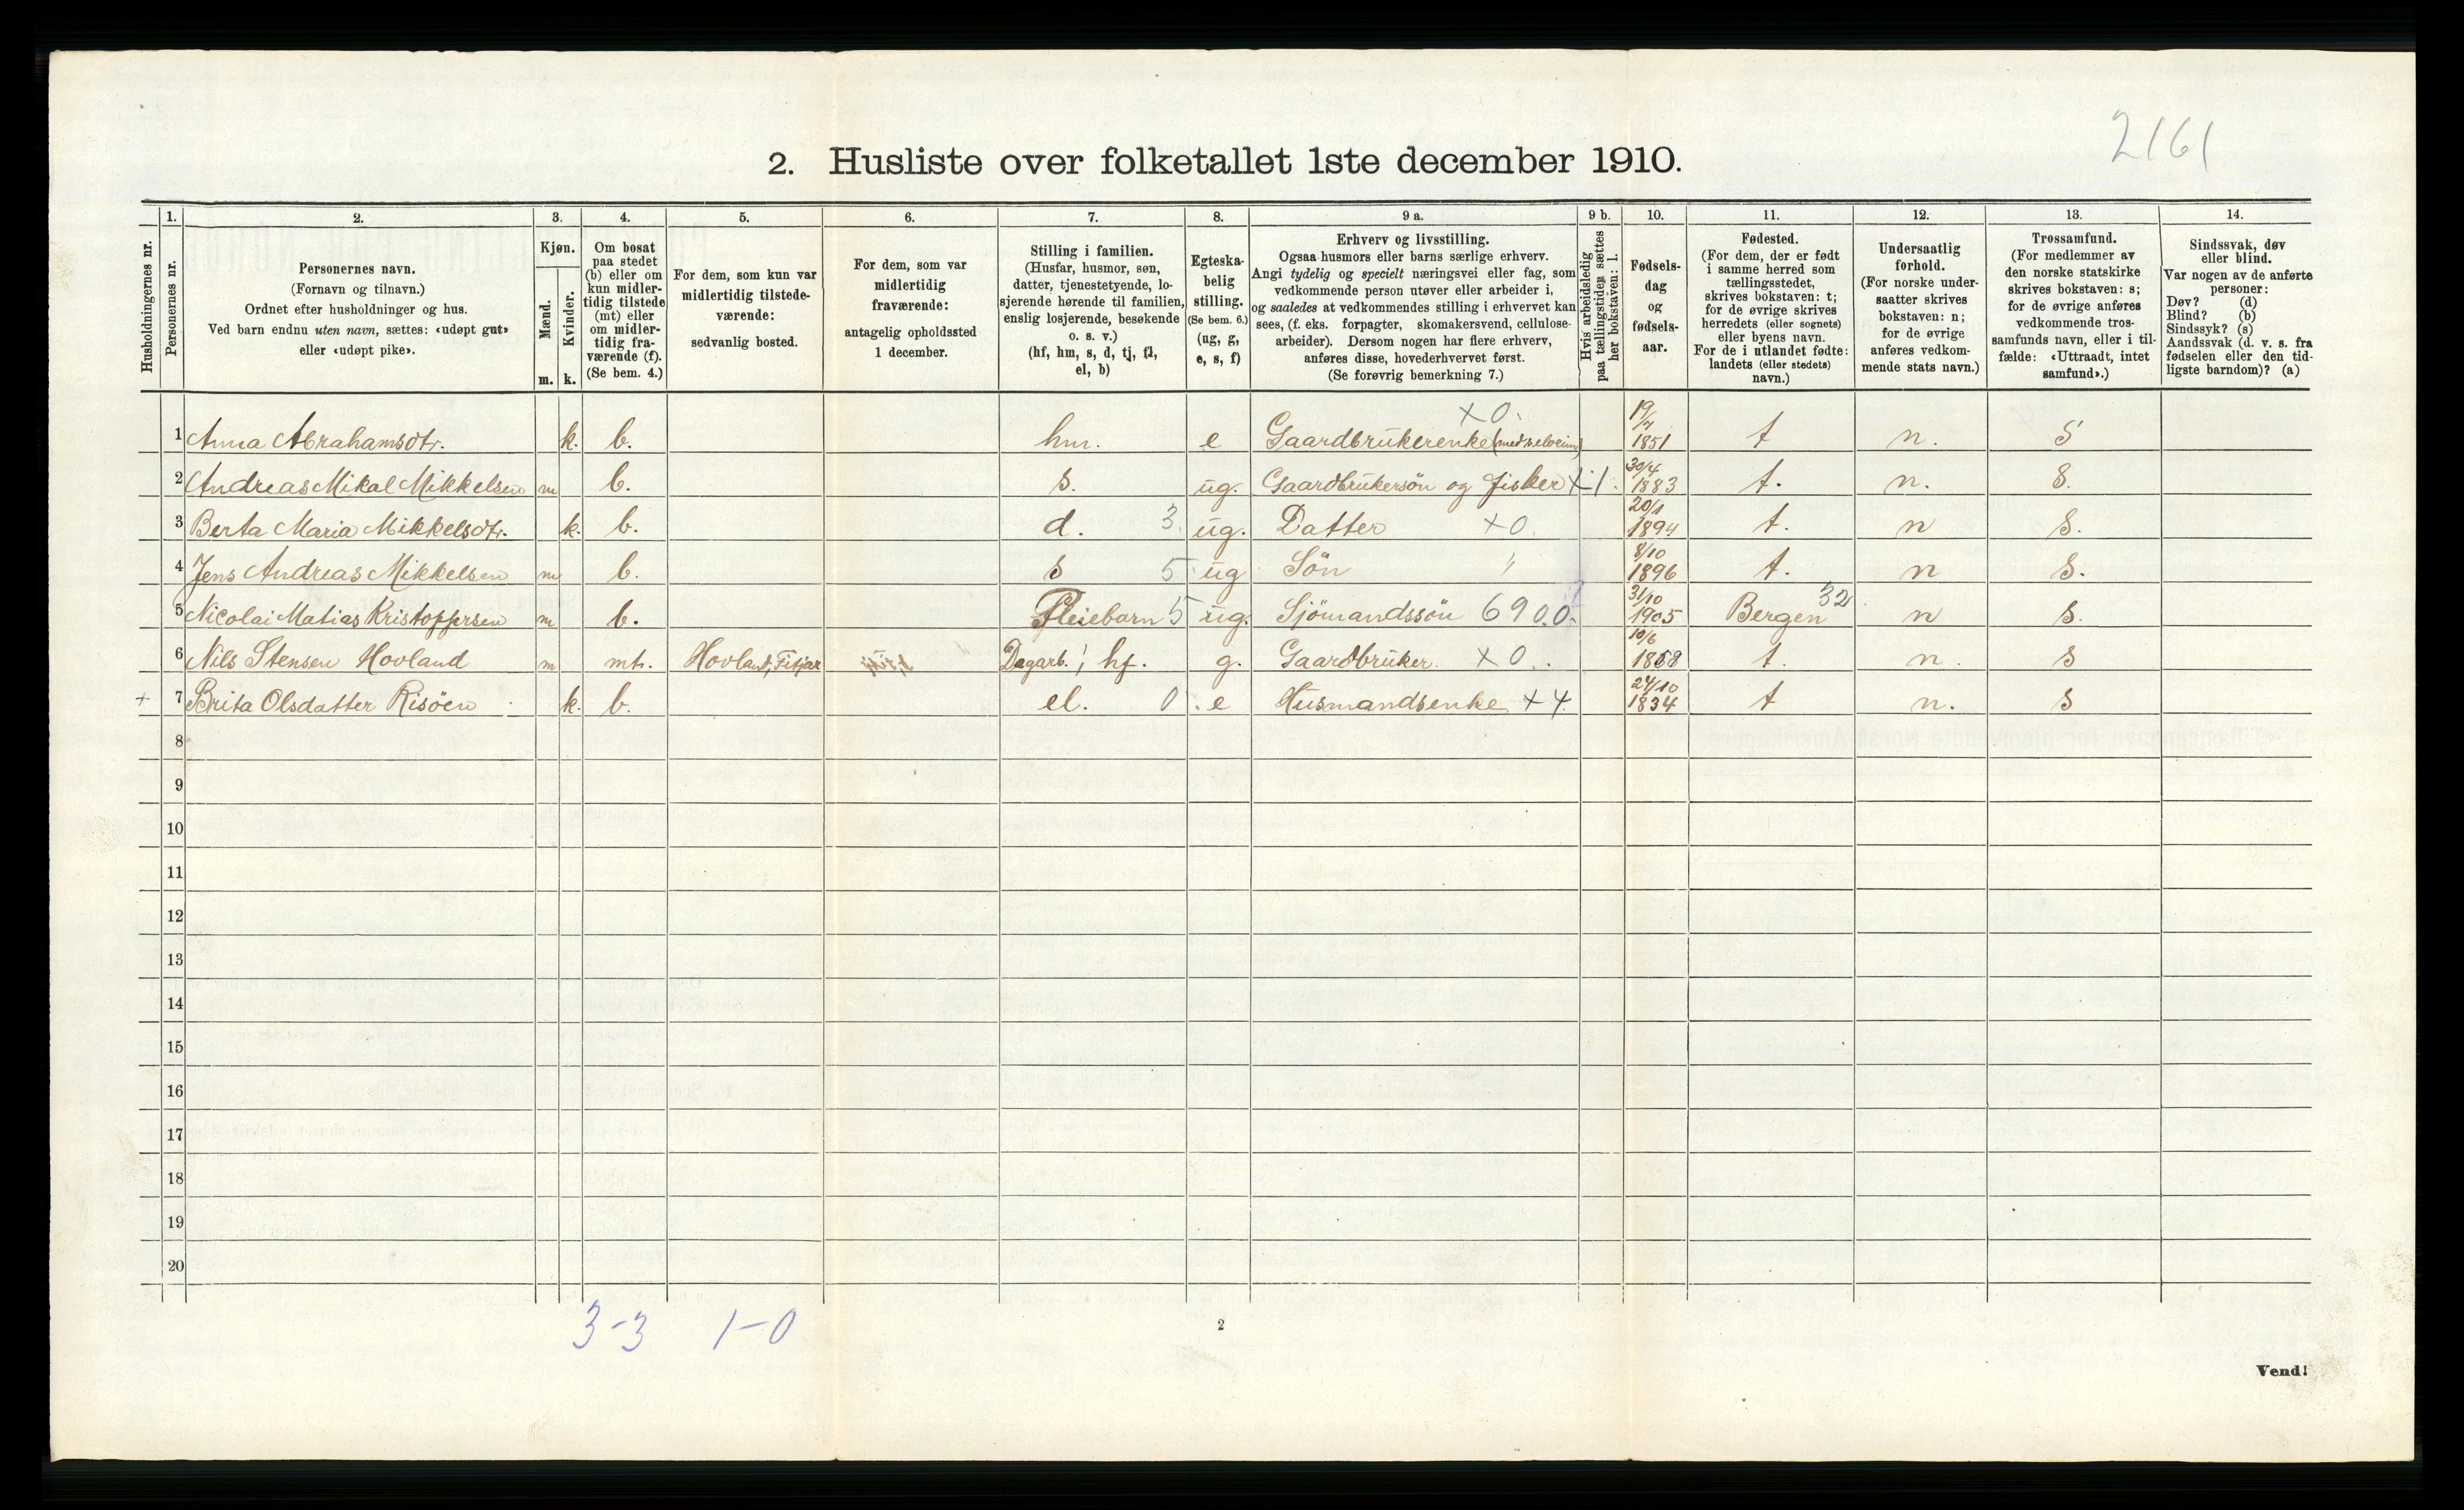 2161
2. Husliste over folketallet 1ste december 1910.
Husholdningernes nr.
1. Personernes nr.
2. Personernes navn.
(Fornavn og tilnavn.)
Ordnet efter husholdninger og hus.
Ved barn endnu uten navn, sættes: «udøpt gut»
eller «udøpt pike».
3. Kjøn.
Mænd. m.
Kvinder. k.
4. Om bosat
paa stedet
(b) eller om
kun midler-
tidig tilstede
(mt) eller
om midler-
tidig fra-
værende (f).
(Se bem. 4.)
5. For dem, som kun var
midlertidig tilstede-
værende:
sedvanlig bosted.
6. For dem, som var
midlertidig
fraværende:
antagelig opholdssted
1 december.
7. Stilling i familien.
(Husfar, husmor, søn,
datter, tjenestetyende, lo-
sjerende hørende til familien,
enslig losjerende, besøkende
o. s. v.)
(hf, hm, s, d, tj, fl,
el, b)
8. Egteska-
belig
stilling.
(Se bem. 6.)
(ug, g,
e, s, f)
9 a. Erhverv og livsstilling.
Ogsaa husmors eller barns særlige erhverv.
Angi tydelig og specielt næringsvei eller fag, som
vedkommende person utøver eller arbeider i,
og saaledes at vedkommendes stilling i erhvervet kan
sees, (f. eks. forpagter, skomakersvend, cellulose-
arbeider). Dersom nogen har flere erhverv,
anføres disse, hovederhvervet først.
(Se forøvrig bemerkning 7.)
9 b. Hvis arbeidsledig
paa tællingstiden sættes
her bokstaven: l.
10. Fødsels-
dag
og
fødsels-
aar.
11. Fødested.
(For dem, der er født
i samme herred som
tællingsstedet,
skrives bokstaven: t;
for de øvrige skrives
herredets (eller sognets)
eller byens navn.
For de i utlandet fødte:
landets (eller stedets)
navn.)
12. Undersaatlig
forhold.
(For norske under-
saatter skrives
bokstaven: n;
for de øvrige
anføres vedkom-
mende stats navn.)
13. Trossamfund.
(For medlemmer av
den norske statskirke
skrives bokstaven: s;
for de øvrige anføres
vedkommende tros-
samfunds navn, eller i til-
fælde: «Uttraadt, intet
samfund».)
14. Sindssvak, døv
eller blind.
Var nogen av de anførte
personer:
Døv? (d)
Blind? (b)
Sindssyk? (s)
Aandssvak (d. v. s. fra
fødselen eller den tid-
ligste barndom)? (a)
1 Anna Abrahamsdtr. k. b. hm. e Gaardbrukerenke x0. 19/7 1851 t n. S
2 Andreas Mikal Mikkelsen m b. s. ug. Gaardbrukersön og Fisker x1. 30/4 1883 t. n. S.
3 Berta Maria Mikkelsdtr. k. b. d. 3. ug. Datter x0. 20/1 1894 t. n S.
4 Jens Andreas Mikkelsen m b. s 5. ug Sön " 8/10 1896 t. n S.
5 Nicolai Matias Kristoffersen m b. Pleiebarn 5 ug. Sjömandssön 6900. 31/10 1905 Bergen 32 n S.
6 Nils Stensen Hovland m mt. Hovland, Fitjar Dagarb.; hf. g. Gaardbruker. x0. 10/6 1858 t. n. S
+ 7 Brita Olsdatter Risöen k. b. el. 0 e Husmandsenke x4. 24/10 1834 t n. S
8
9
10
11
12
13
14
15
16
17
18
19
20
3-3 1-0
2
Vend!